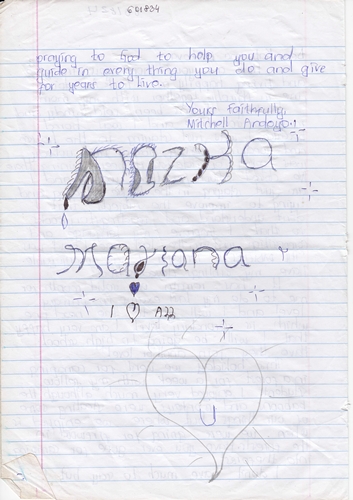 601834
praying to God to help you and
guide in every thing you do and give
for years to live.
Yours Faithfully,
Mariana
I A22
U